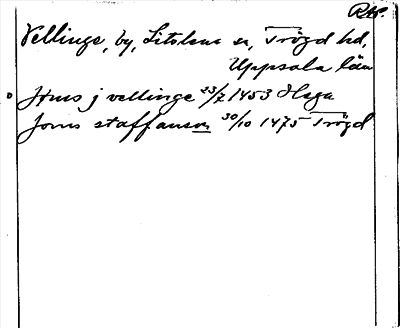 Vellinge, by, Litslena sn, Trögd hd,
Uppsala län
Jöns j vellinge 23/7 1453 Haga
Jonis staffanson 30/10 1475 Trögd